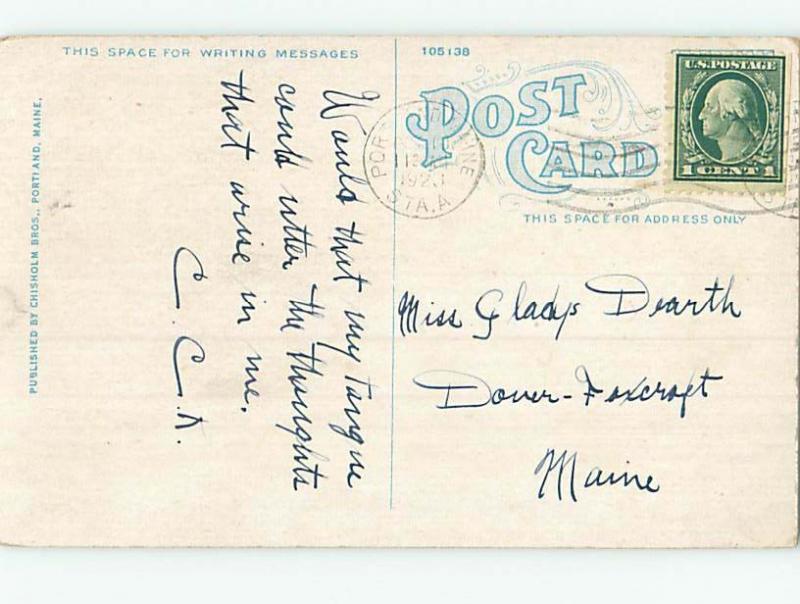 THIS SPACE FOR WRITING MESSAGES
105138
POST CARD
U.S. POSTAGE
1 CENT 1
STA. A
THIS SPACE FOR ADDRESS ONLY
PUBLISHED BY CHISHOLM BROS., PORTLAND, MAINE.
Would that my tongue
could utter the thoughts
that arise in me.
C. C. A.
Miss Gladys Dearth
Dover-Foxcroft
Maine